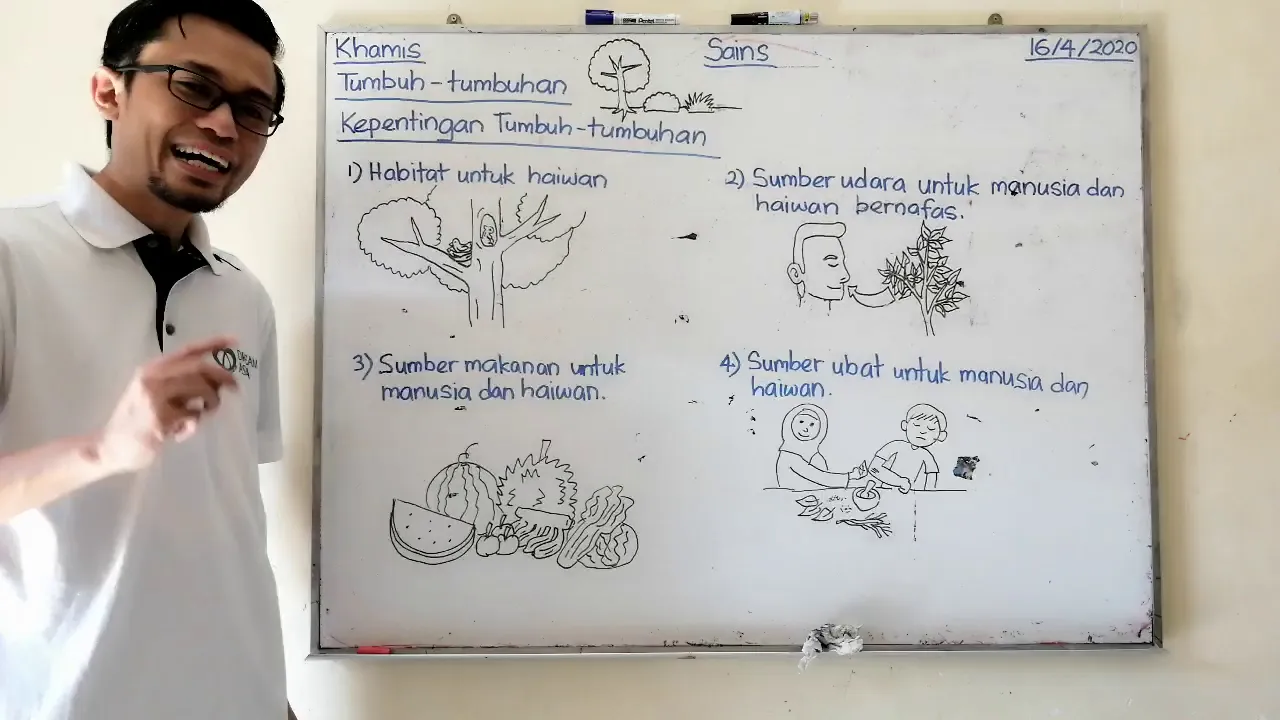 Khamis
Sains
16/4/2020
Tumbuh-tumbuhan
Kepentingan Tumbuh-tumbuhan
1) Habitat untuk haiwan
2) Sumber udara untuk manusia dan
haiwan bernafas.
3) Sumber makanan untuk
manusia dan haiwan.
4) Sumber ubat untuk manusia dan
haiwan.
Pentel